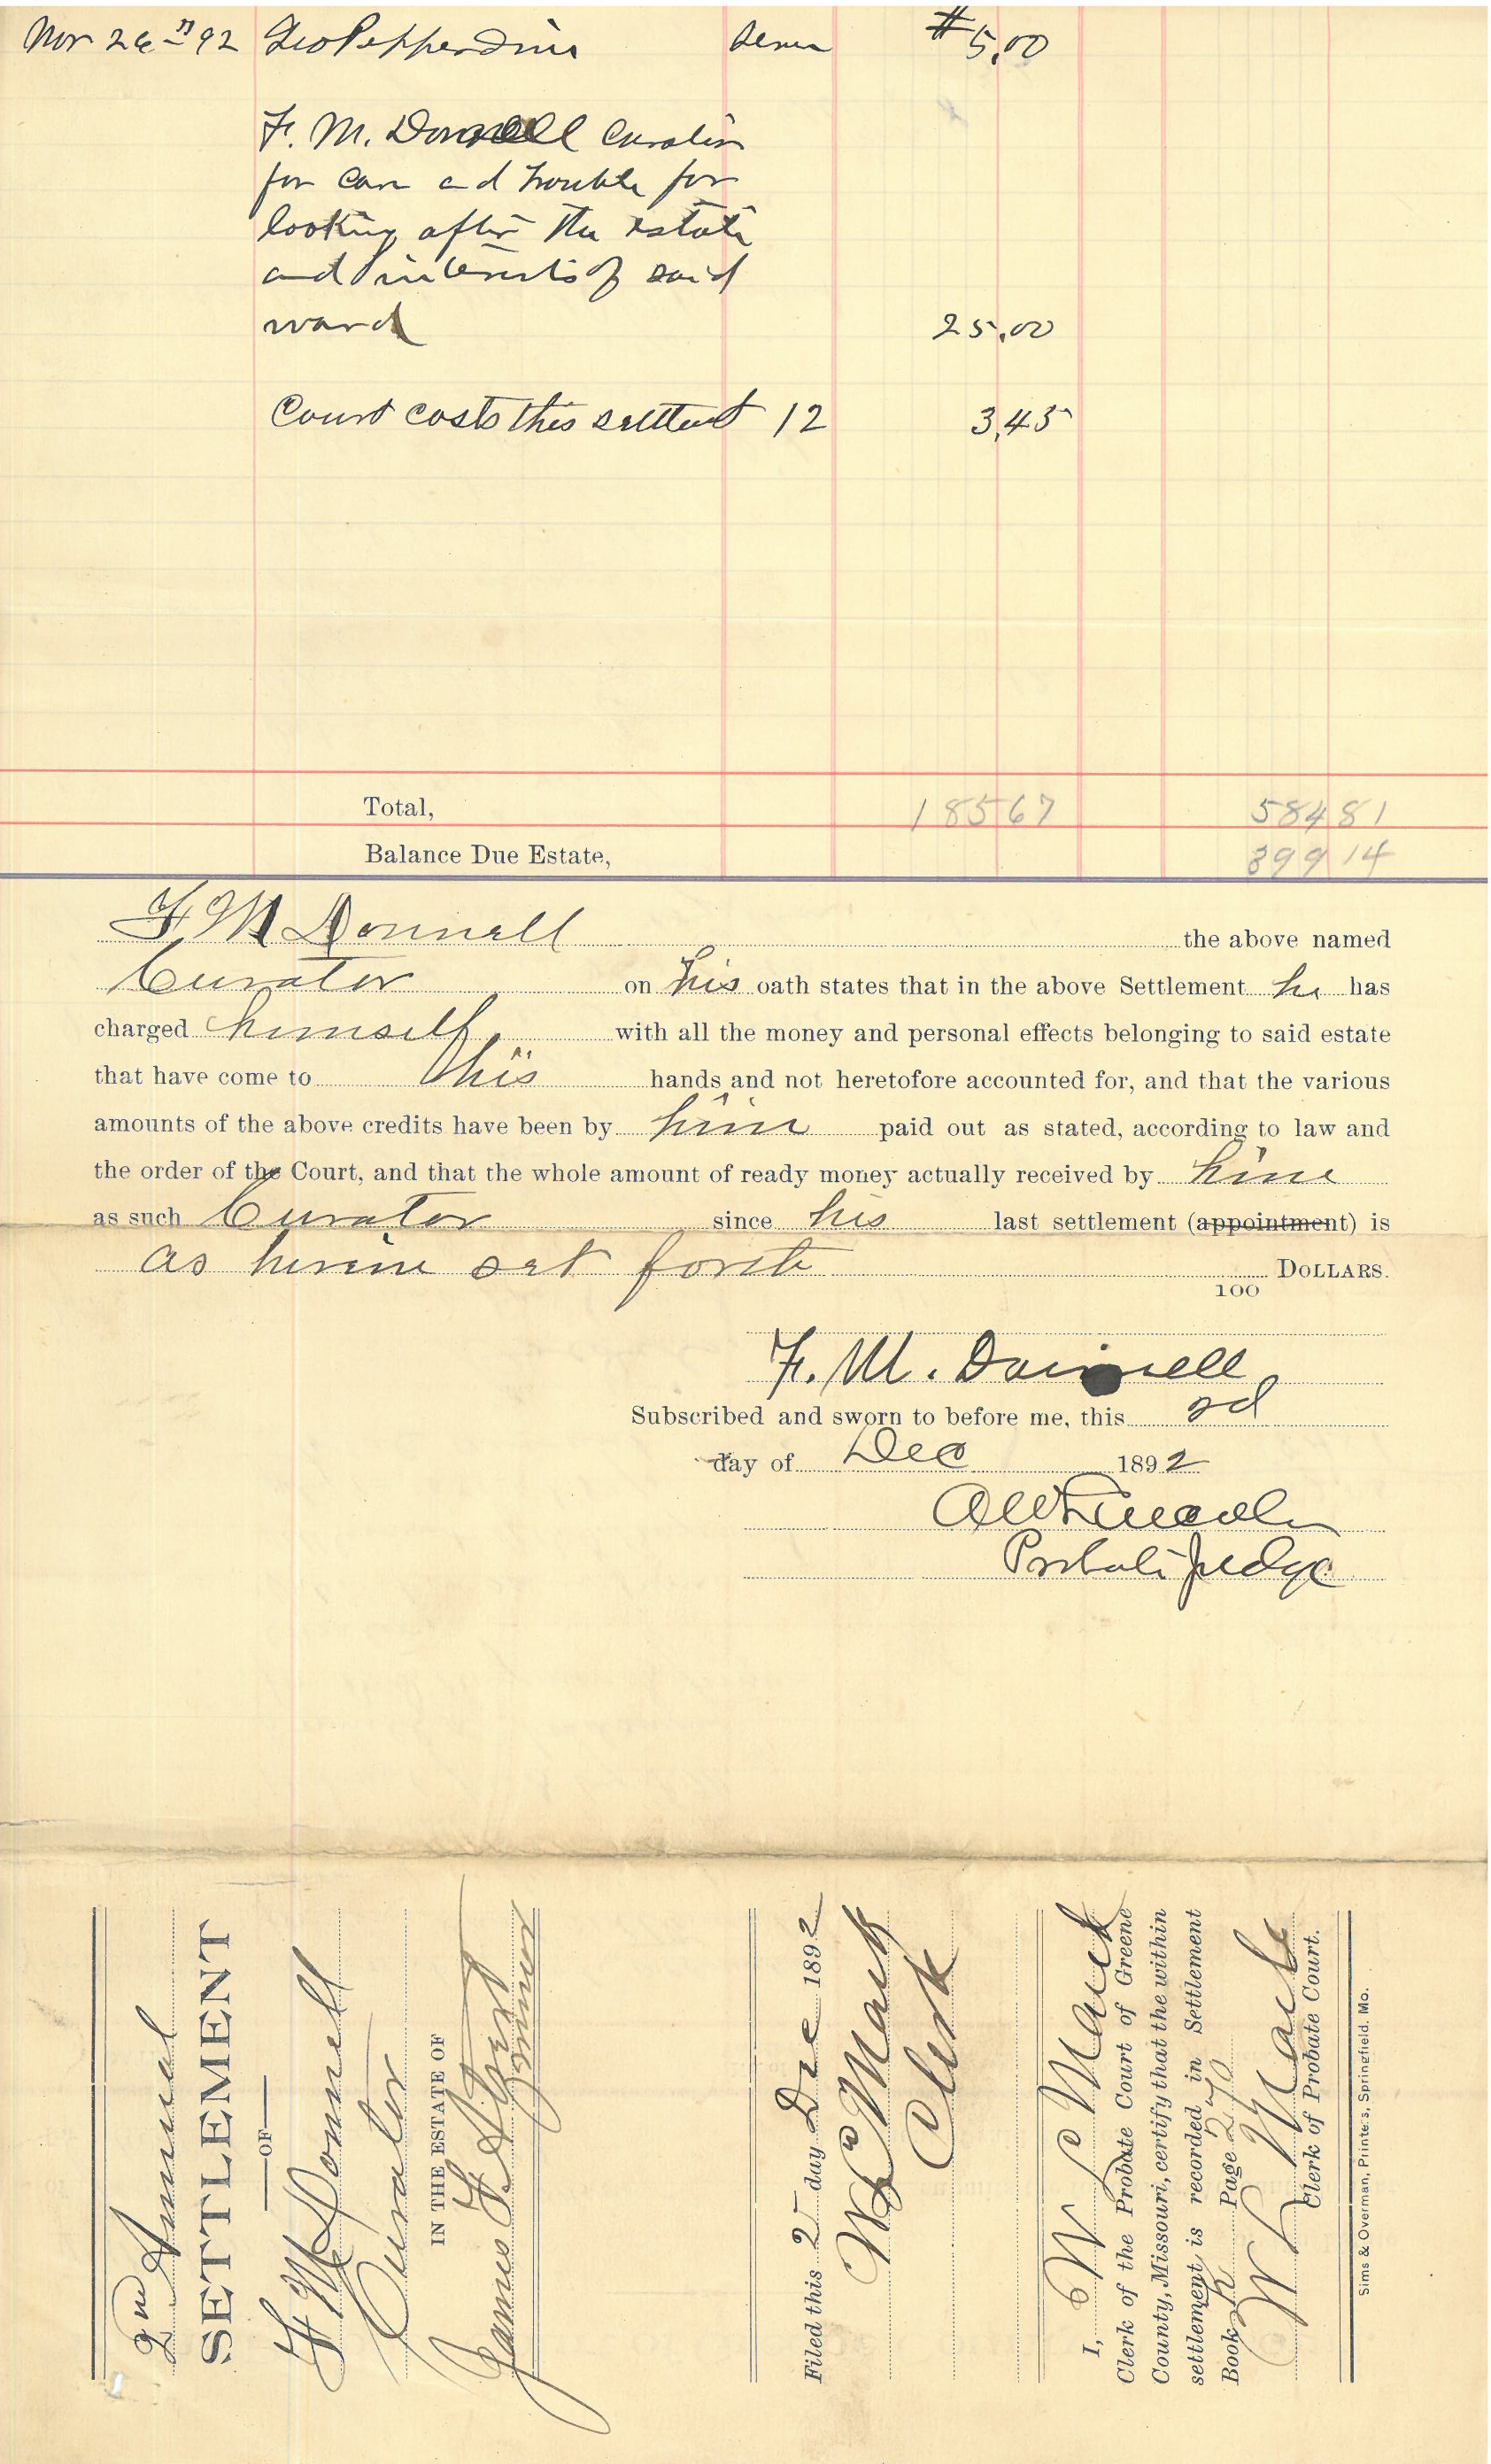 Nov 26 '92 Geo Pepperdine seven #5,00
F. M. Donnell Curator
for care and trouble for
looking after the estate
and interests of said
ward 25,00
Court costs this settlemt 12 3,45
Total, 185 67 584 81
Balance Due Estate, 399 14
F M Donnell the above named
Curator on his oath states that in the above Settlement he has
charged himself with all the money and personal effects belonging to said estate
that have come to his hands and not heretofore accounted for, and that the various
amounts of the above credits have been by him paid out as stated, according to law and
the order of the Court, and that the whole amount of ready money actually received by him
as such Curator since his last settlement (appointment) is
as herein set forth DOLLARS.
100
F. M. Donnell
Subscribed and sworn to before me, this 2d
day of Dec 1892
A W Lincoln
Probate Judge
2nd Annual
SETTLEMENT
OF
F M Donnell
Curator
IN THE ESTATE OF
James F
minor
Filed this 2 day Dec 1892
W C Mack
Clerk
I, W C Mack
Clerk of the Probate Court of Greene
County, Missouri, certify that the within
settlement is recorded in Settlement
Book Page 270
W C Mack
Clerk of Probate Court.
Sims & Overman, Printers, Springfield, Mo.